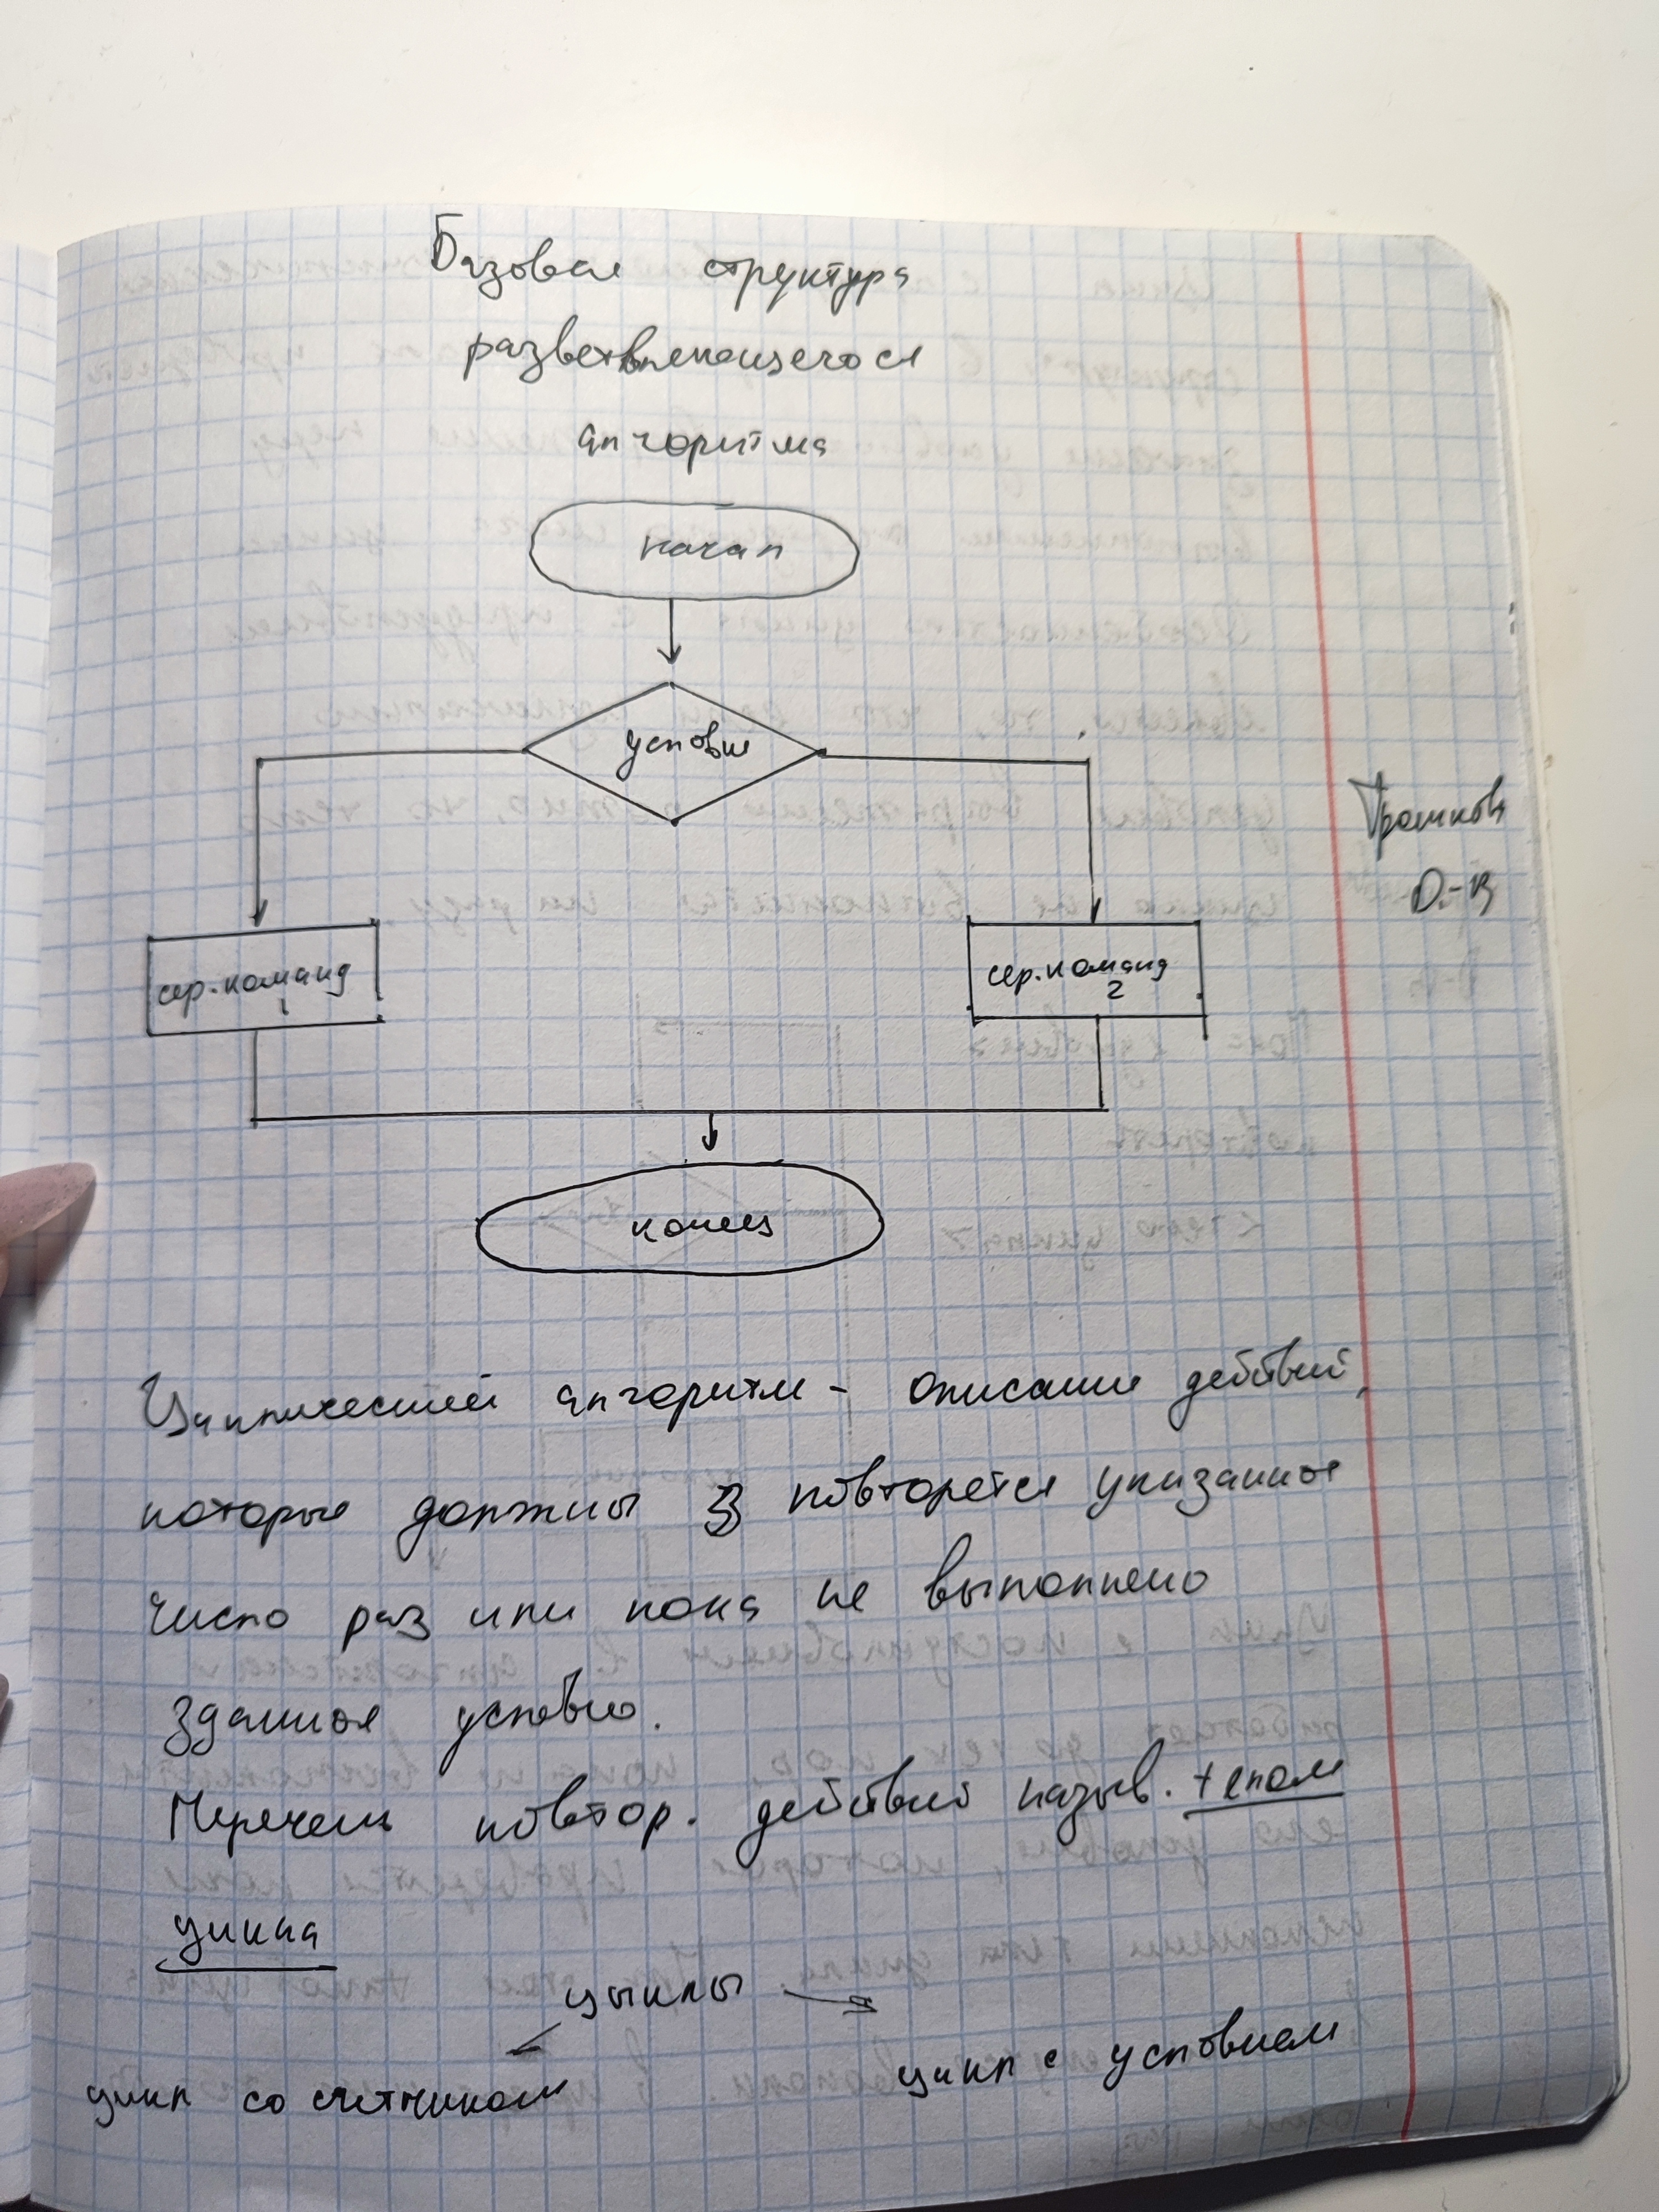 Базовая структура
разветвляющегося
алгоритма
начал
условие
сер. команд
1
сер. команд
2
конец
Циклический алгоритм - описание действий,
которые должны повторятся указанное
число раз или пока не выполнено
зданное условие.
Перечень повтор. действий назыв. телом
цикла
цыклы
цикл со счетчиком
цикл с условием